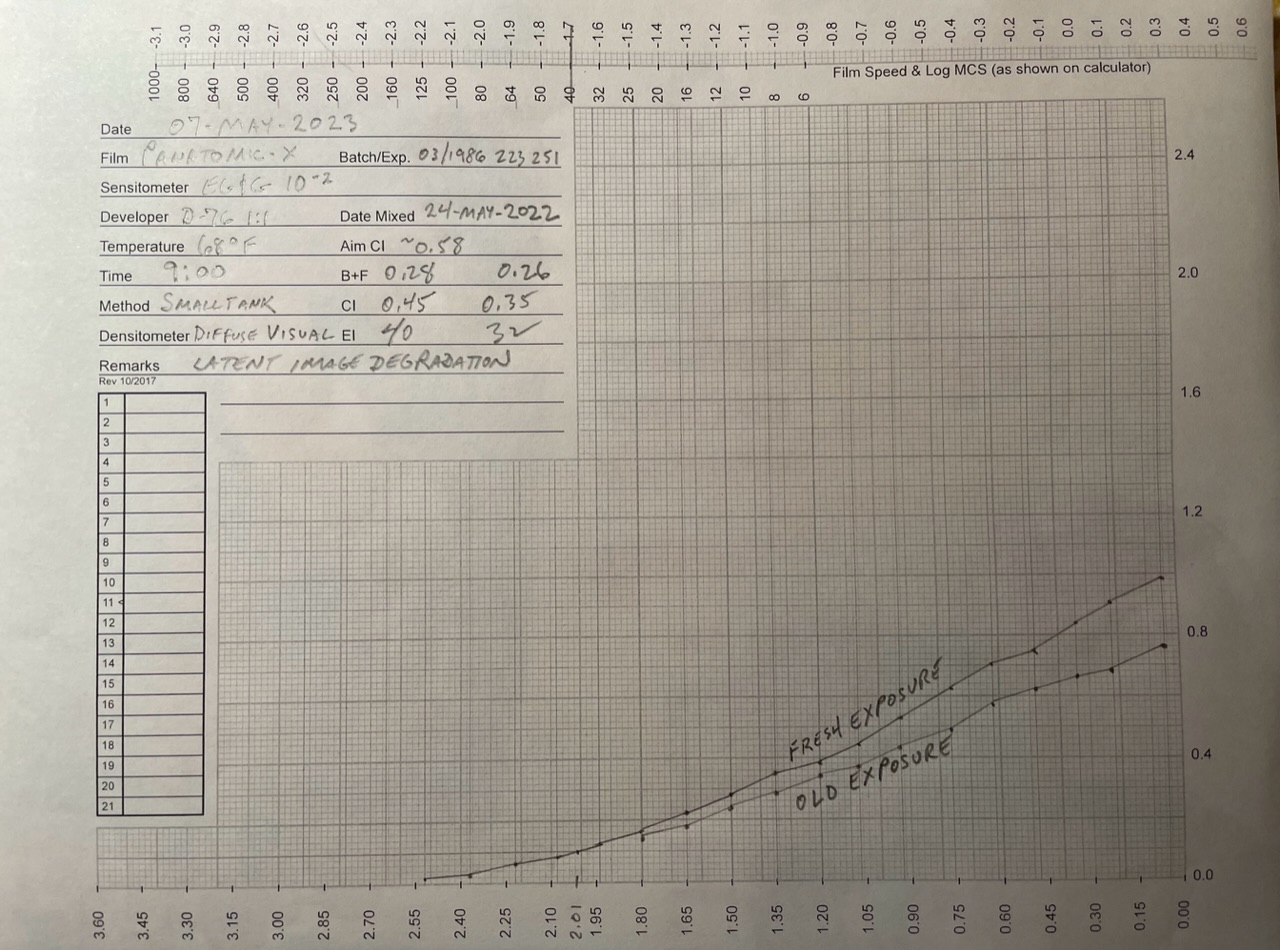 -3.1 -3.0 -2.9 -2.8 -2.7 -2.6 -2.5 -2.4 -2.3 -2.2 -2.1 -2.0 -1.9 -1.8 -1.7 -1.6 -1.5 -1.4 -1.3 -1.2 -1.1 -1.0 -0.9 -0.8 -0.7 -0.6 -0.5 -0.4 -0.3 -0.2 -0.1 0.0 0.1 0.2 0.3 0.4 0.5 0.6
1000 800 640 500 400 320 250 200 160 125 100 80 64 50 40 32 25 20 16 12 10 8 6
Film Speed & Log MCS (as shown on calculator)
Date 07-MAY-2023
Film PANATOMIC-X Batch/Exp. 03/1986 223 251
Sensitometer EG&G 10-2
Developer D-76 1:1 Date Mixed 24-MAY-2022
Temperature 68°F Aim CI ~0.58
Time 9:00 B+F 0.28 0.26
Method SMALL TANK CI 0.45 0.35
Densitometer DIFFUSE VISUAL EI 40 32
Remarks LATENT IMAGE DEGRADATION
Rev 10/2017
1
2
3
4
5
6
7
8
9
10
11
12
13
14
15
16
17
18
19
20
21
2.4
2.0
1.6
1.2
0.8
0.4
0.0
FRESH EXPOSURE
OLD EXPOSURE
3.60 3.45 3.30 3.15 3.00 2.85 2.70 2.55 2.40 2.25 2.10 2.01 1.95 1.80 1.65 1.50 1.35 1.20 1.05 0.90 0.75 0.60 0.45 0.30 0.15 0.00